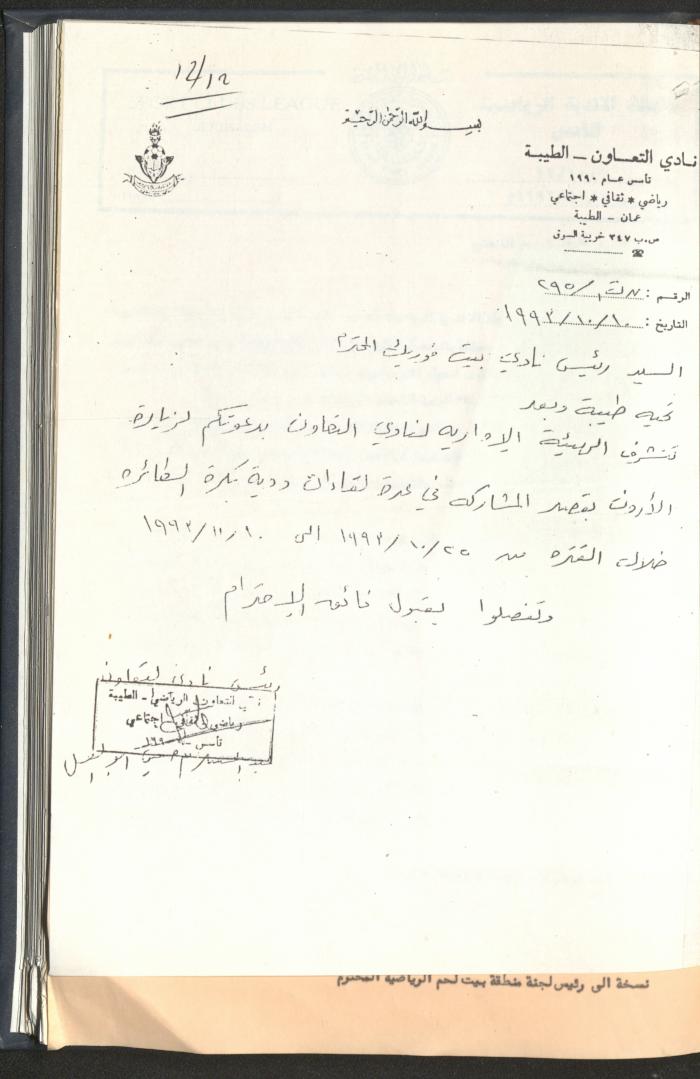 ١٢/١٢
بسم الله الرحمن الرحيم
نادي التعاون - الطيبة
تأسس عام ١٩٩٠
رياضي * ثقافي * اجتماعي
عمان - الطيبة
ص.ب ٣٤٧ خريبة السوق
الرقم : ٢٩٥/
التاريخ : ١٩٩٣/١٠/١٠
السيد رئيس نادي بيت فوريك المحترم
تحيه طيبة وبعد
تتشرف الهيئة الاداريه لنادي التعاون بدعوتكم لزيارة
الأردن بقصد المشاركه في عدة لقاءات ودية بكرة الطائره
خلال الفتره من ١٩٩٣/١٠/٢٥ الى ١٩٩٣/١١/١٠
وتفضلوا بقبول فائق الاحترام
رئيس نادي التعاون
التعاون الرياضي - الطيبة
رياضي ثقافي اجتماعي
تأسس - ١٩٩٠
عبد السلام
نسخة الى رئيس لجنة منطقة بيت لحم الرياضية المحترم